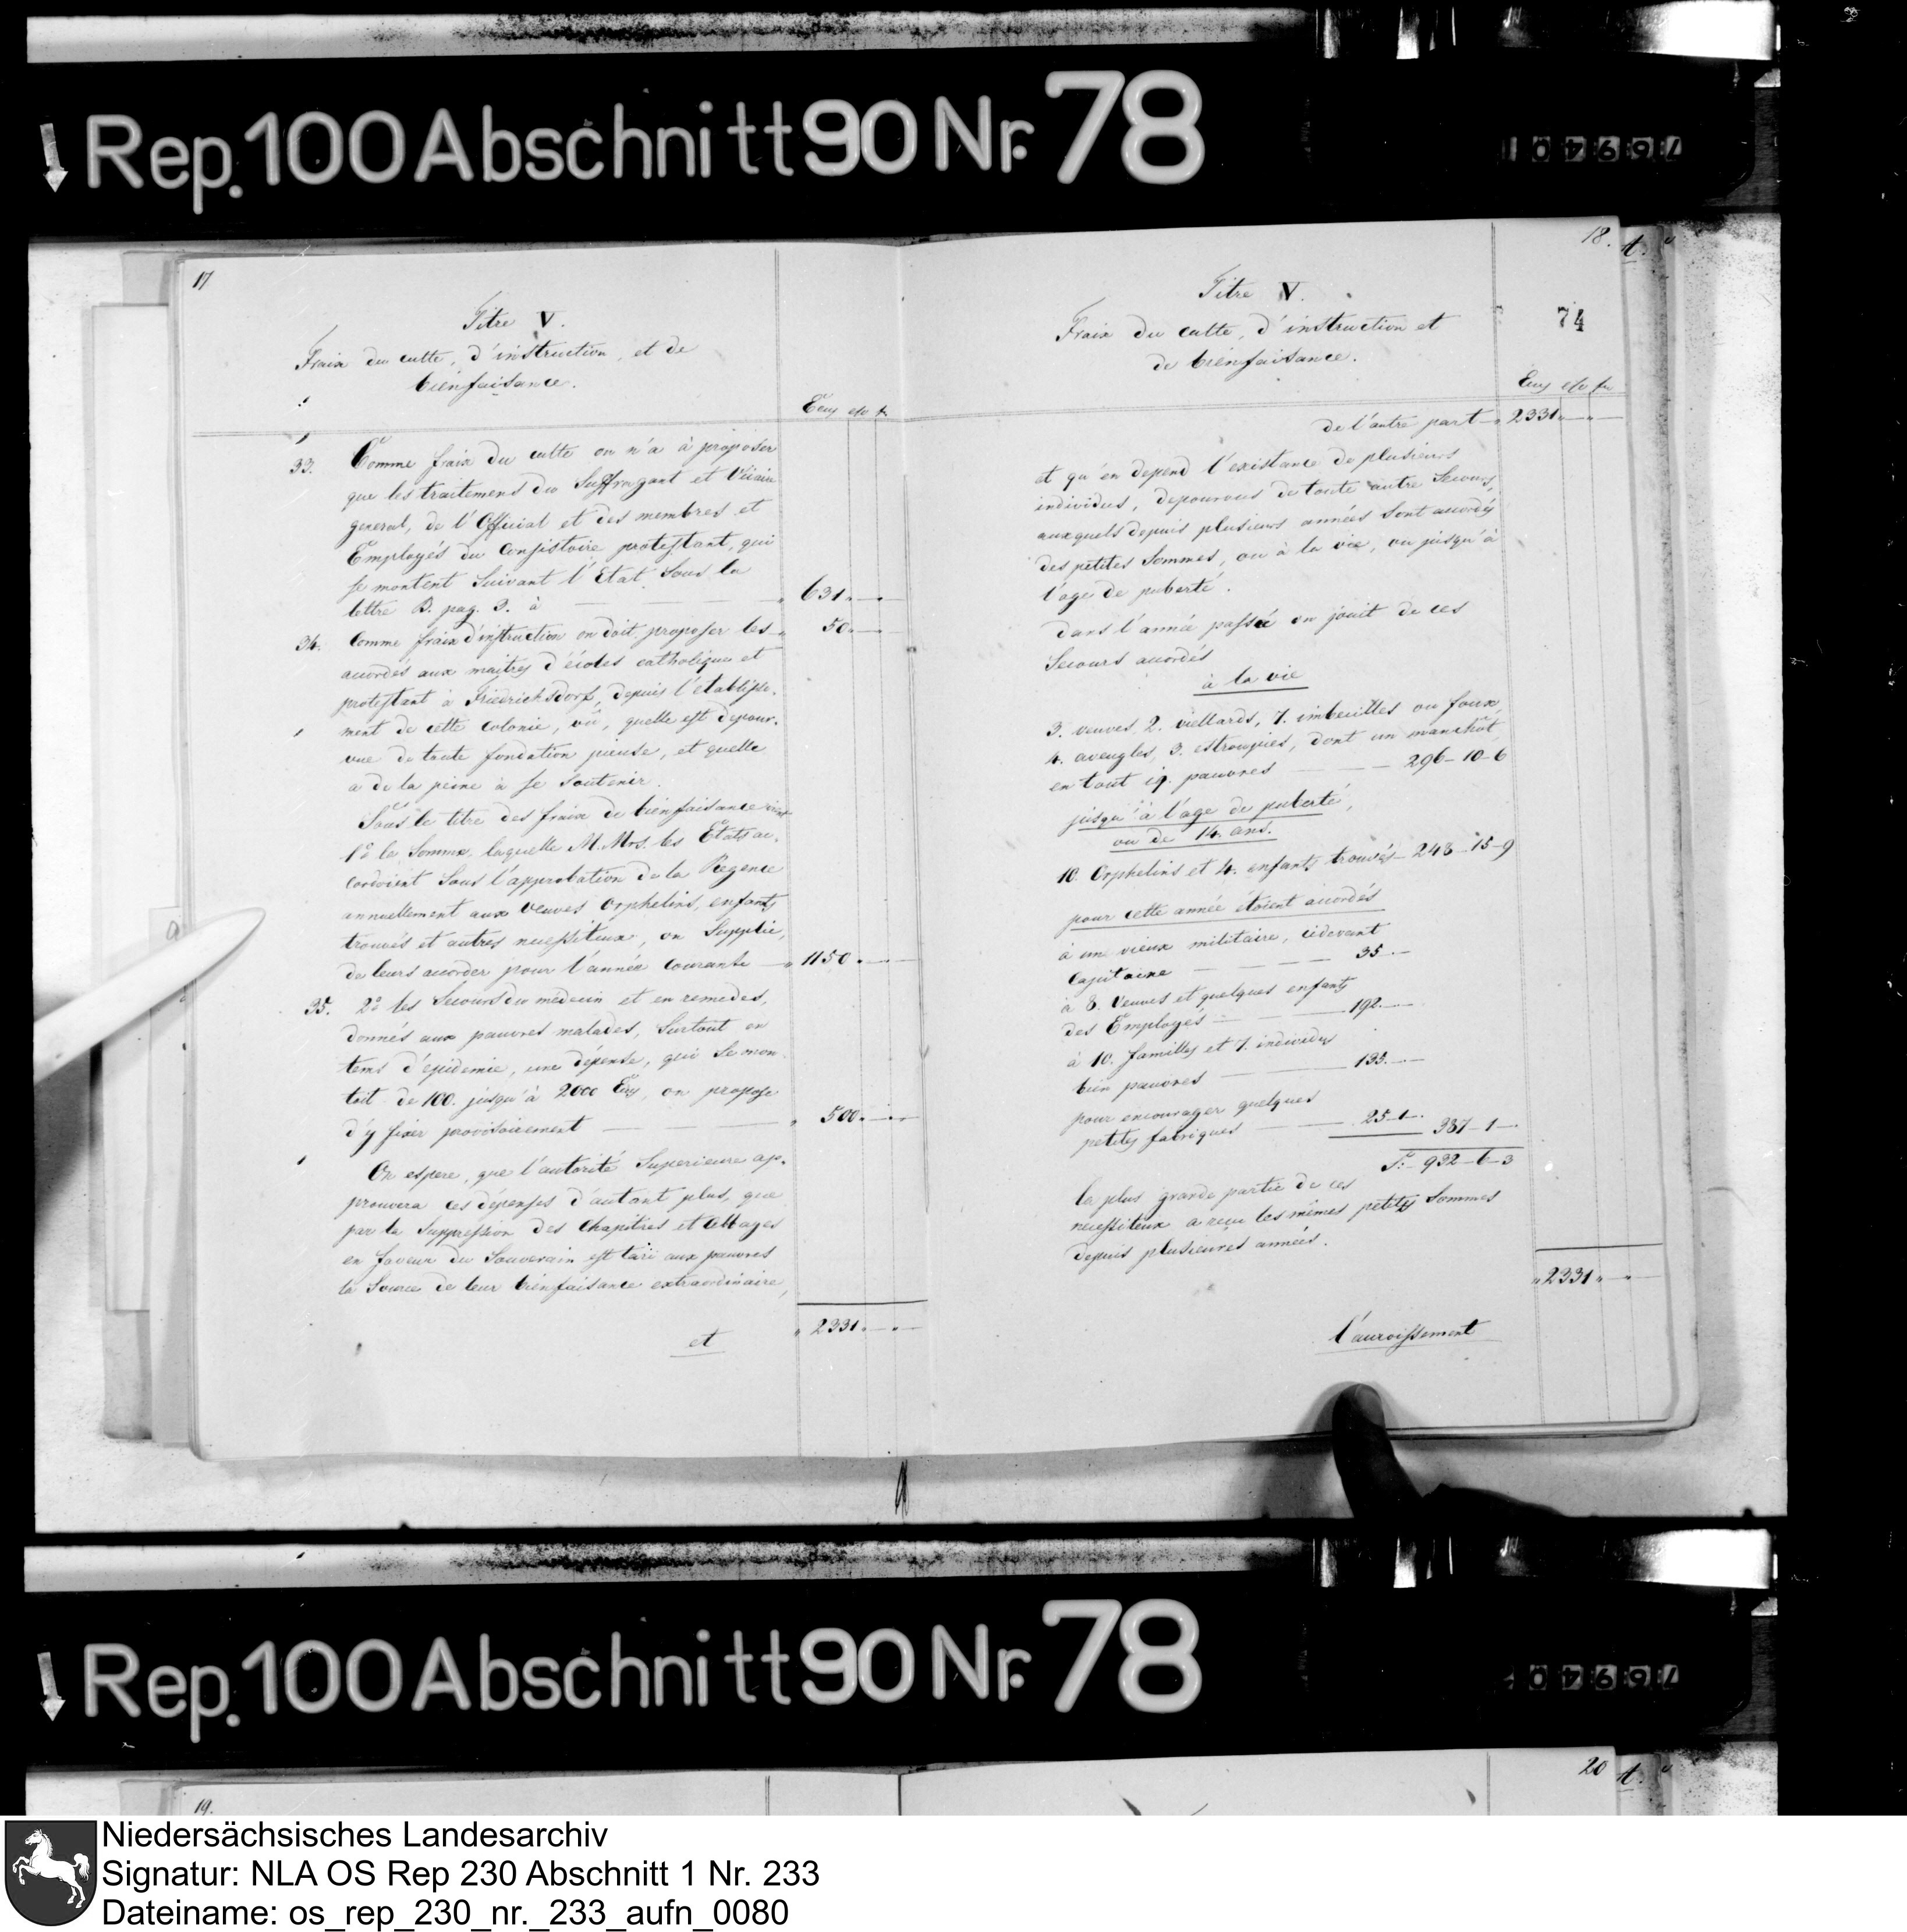 Rep. 100 Abschnitt 90 Nr. 78
17
Titre V.
Fraix du culte, d'instruction, et de
bienfaisance.
Ecus
33. Comme fraix du culte on n'a à proposer
que les traitemens du Suffragant et Vicaire
general, de l'Official et des membres et
Employés du Consistoire protestant, qui
se montent Suivant l'Etat Sous la
lettre B. pag. 3. à 631.
34. Comme fraix d'instruction on doit proposer les 50.
accordés aux maitres d'écoles catholique et
protestant à Friedrichsdorf, depuis l'etablisse-
ment de cette colonie, vû, quelle est depour-
vue de toute fondation pieuse, et quelle
a de la peine à se Soutenir.
Sous le titre des fraix de bienfaisance vient
1º la Somme, laquelle M.Mrs. les Etats ac-
cordoient Sous l'approbation de la Regence
annuellement aux Veuves Orphelins, enfants
trouvés et autres necessiteux, on Supplie,
de leurs accorder pour l'année courante 1150.
35. 2º les Secours du médecin et en remedes,
donnés aux pauvres malades, Surtout en
tems d'épidemie, une dépense, qui Se mon-
toit de 100. jusqu'à 2000 Ecus, on propose
d'y fixer provisoirement 500.
On espere, que l'autorité Superieure ap-
prouvera ces dépenses d'autant plus, que
par la Suppression des Chapitres et Abbayes
en faveur du Souverain est tari aux pauvres
la Source de leur bienfaisance extraordinaire,
2331.
et
18.
Titre V.
74
Fraix du culte, d'instruction et
de bienfaisance.
Ecus
de l'autre part 2331
et qu'en depend l'existance de plusieurs
individus, depourvus de toute autre Secours,
auxquels depuis plusieurs années Sont accordés
des petites Sommes, ou à la vie, ou jusqu'à
l'age de puberté.
dans l'anné passée on jouit de ces
Secours accordés
à la vie
3. veuves, 2. viellards, 7. imbecilles ou foux,
4. aveugles, 3. estropiés, dont un manchôt,
en tout 19. pauvres 296-10-6
jusqu'à l'age de puberté,
ou de 14. ans.
10. Orphelins et 4. enfants trouvés 248-15-9
pour cette année étoient accordés
à une vieux militaire, cidevant
Capitaine 35.
à 8. Veuves et quelques enfants
des Employés 192.
à 10. familles et 7. individus
bien pauvres 135.
pour encourager quelques
petites fabriques 25-1. 387-1-
S: 932-6-3
la plus grande partie de ces
necessiteux a reçu les mêmes petites Sommes
depuis plusieures années.
2331
l'accroissement
Rep. 100 Abschnitt 90 Nr. 78
19.
20
Niedersächsisches Landesarchiv
Signatur: NLA OS Rep 230 Abschnitt 1 Nr. 233
Dateiname: os_rep_230_nr._233_aufn_0080